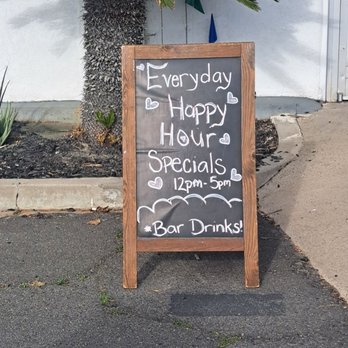 Everyday
Happy
Hour
Specials
12pm-5pm
*Bar Drinks!